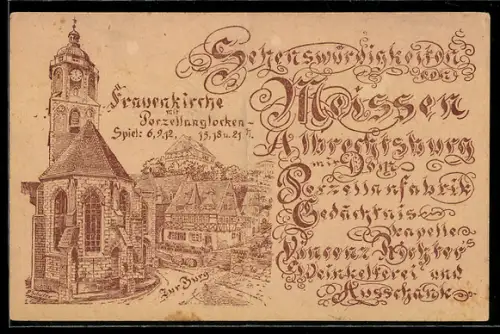 Frauenkirche
mit
Porzellanglocken-
Spiel: 6, 9, 12,
15, 18 u. 21 h
Zur Burg
Sehenswürdigkeiten
von
Meissen
Albrechtsburg
mit Dom
Porzellanfabrik
Gedächtnis-
kapelle
Vincenz Richter's
Weinkelterei und
Ausschank